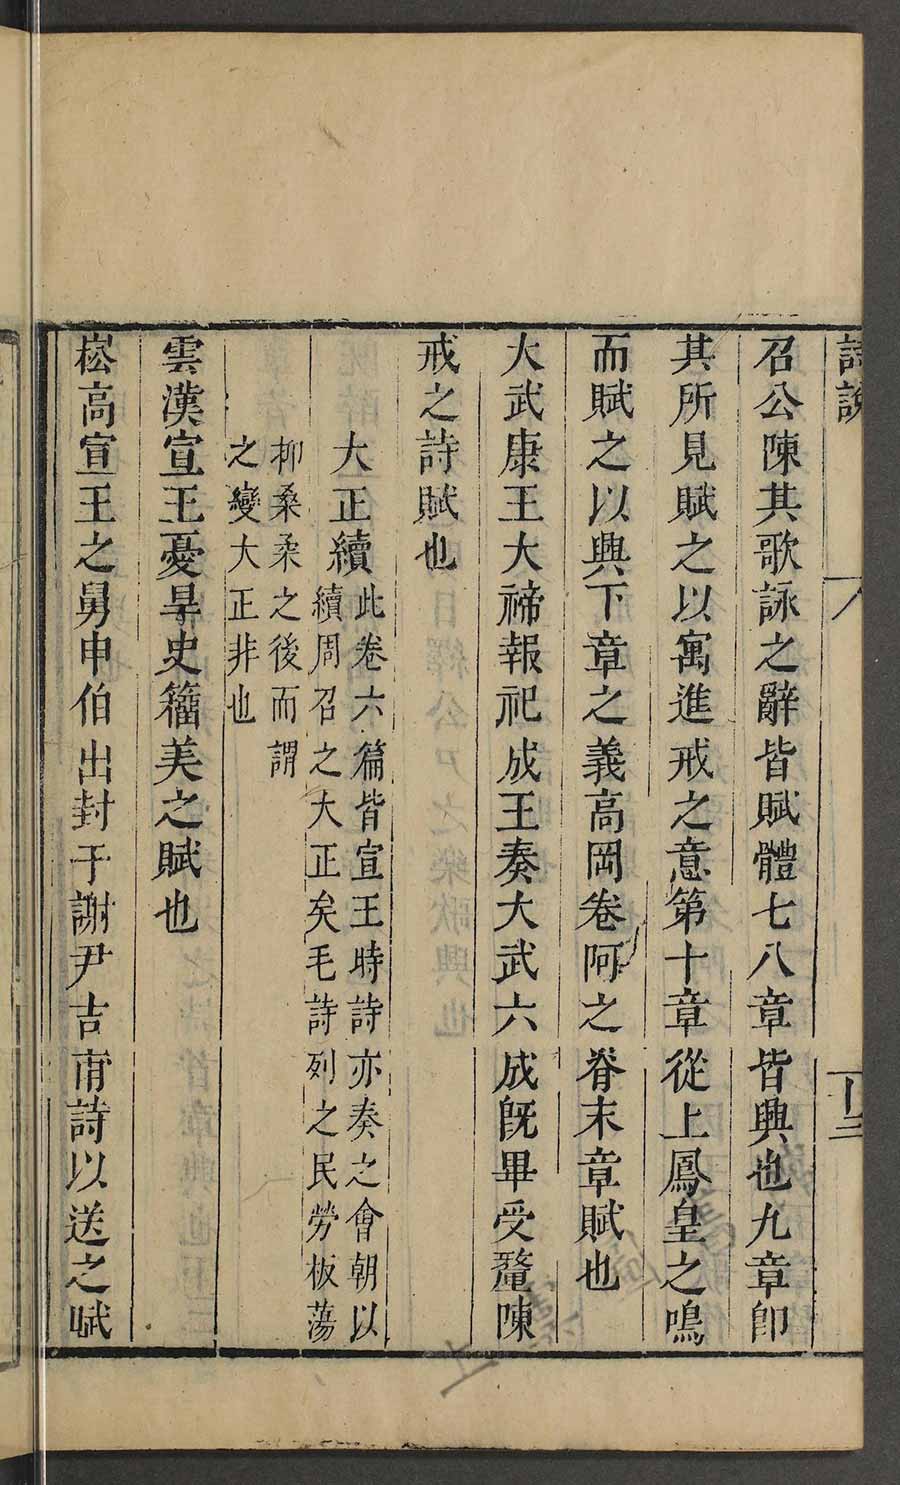 詩說
十三
召公陳其歌詠之辭皆賦體七八章皆興也九章即
其所見賦之以寓進戒之意第十章從上鳳皇之鳴
而賦之以興下章之義高岡卷阿之脊末章賦也
大武康王大禘報祀成王奏大武六成既畢受釐陳
戒之詩賦也
大正續此卷六篇皆宣王時詩亦奏之會朝以
續周召之大正矣毛詩列之民勞板蕩
柳桑柔之後而謂
之變大正非也
雲漢宣王憂旱史籀美之賦也
崧高宣王之舅申伯出封于謝尹吉甫詩以送之賦